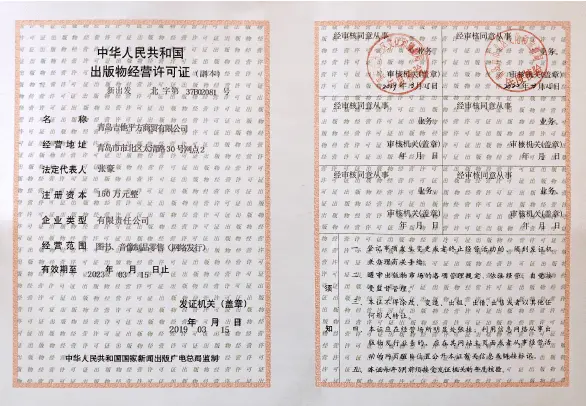 中华人民共和国
出版物经营许可证(副本)
新出发 北字第 号
名 称
青岛吉他平方商贸有限公司
经营地址
青岛市市北区 路30号网点2
法定代表人 张豪
注册资本 100万元整
企业类型 有限责任公司
经营范围 图书、音像制品零售(网络发行)
有效期至 2023 年 03 月 15 日止
发证机关(盖章)
年 月 日
2019 03 15
中华人民共和国国家新闻出版广电总局监制
经审核同意从事
业务。
审核机关(盖章)
经审核同意从事
业务。
审核机关(盖章)
经审核同意从事
业务。
审核机关(盖章)
年 月 日
经审核同意从事
业务。
审核机关(盖章)
年 月 日
经审核同意从事
业务。
审核机关(盖章)
年 月 日
经审核同意从事
业务。
审核机关(盖章)
年 月 日
须
知
一、登记事项发生变更或者终止经营活动的,须到发证机
关办理有关手续。
二、遵守出版物市场的各项管理规定,依法经营,自觉接
受监督管理。
三、本证不得涂改、变造、出租、出借、出售或者以其他任
何形式转让。
四、本证应在经营场所明显处张挂,利用信息网络从事出
版物发行业务的,应在其网站主页面或者从事经营活
动的网页醒目位置公开本证有关信息或链接标识。
五、